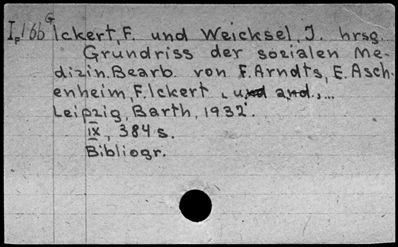 I,166 G Ickert, F. und Weicksel, J. hrsg.
Grundriss der sozialen Me-
dizin. Bearb. von F. Arndts, E. Asch-
enheim, F. Ickert, und and., ...
Leipzig, Barth, 1932.
IX, 384 s.
Bibliogr.